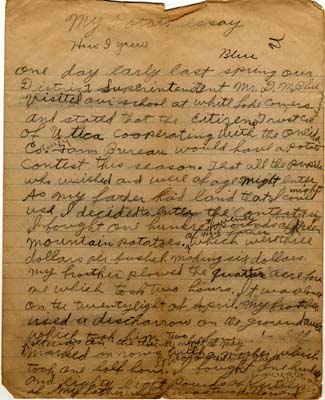 My Potato essay
How I grew
Blue
One day early last spring our
District Superintendent Mr. D. M. Blue
visited our school at White Lake Corners
and stated that the Citizens Trust Co.
of Utica cooperating with the Oneida
Co. Farm Bureau would have a Potato
Contest this season. That all the pupils
who wished and were of age might enter
As my father had land that I could
use, I decided to enter the contest
I bought one hundred
mountain potatoes, which were three
dollars per bushel making six dollars.
My brother plowed the quarter acre for
me which took two hours. It was done
on the twenty eight of April. My brother
used a disc harrow on the ground
which took him two
marked in rows
took one half hour. I bought one hundred
and eighty eight pounds of fertilizer
of my father which was two dollars and